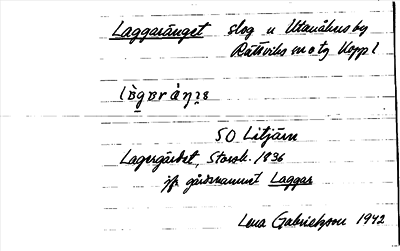 Laggaränget slog n Utanåkers by
Rättviks sn o tg Kopp l
SO Litjärn
Lagergärdet, Storsk. 1836
jfr gårdsnamnet Laggar
Lena Gabrielsson 1942